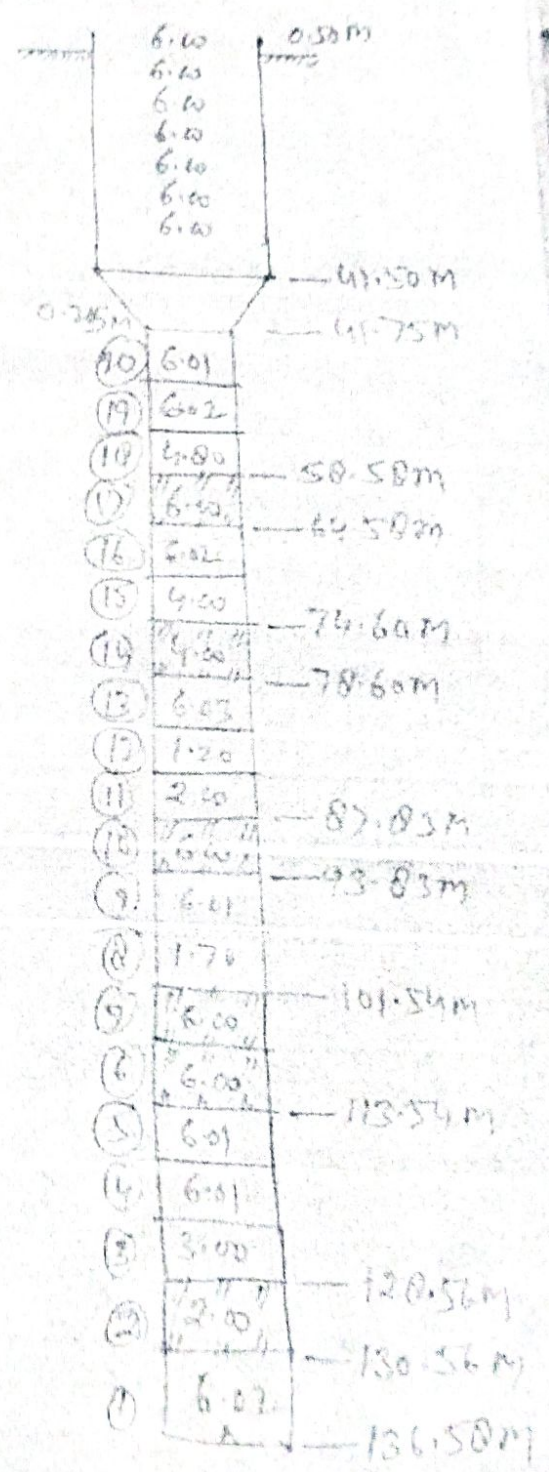 6.00 0.50m
6.00
6.00
6.00
6.00
6.00
6.00
41.50m
41.75m
6.01
19 6.02
18 4.80
58.58m
17 6.00
64.58m
16 6.02
15 4.00
74.60m
14 4.00
78.60m
13 6.03
12 1.20
11 2.00
87.83m
10 6.00
93.83m
9 6.01
8 1.70
101.54m
6.00
6 6.00
113.54m
5 6.01
4 6.01
3 3.00
128.56m
2 2.00
130.56m
1 6.02
136.58m